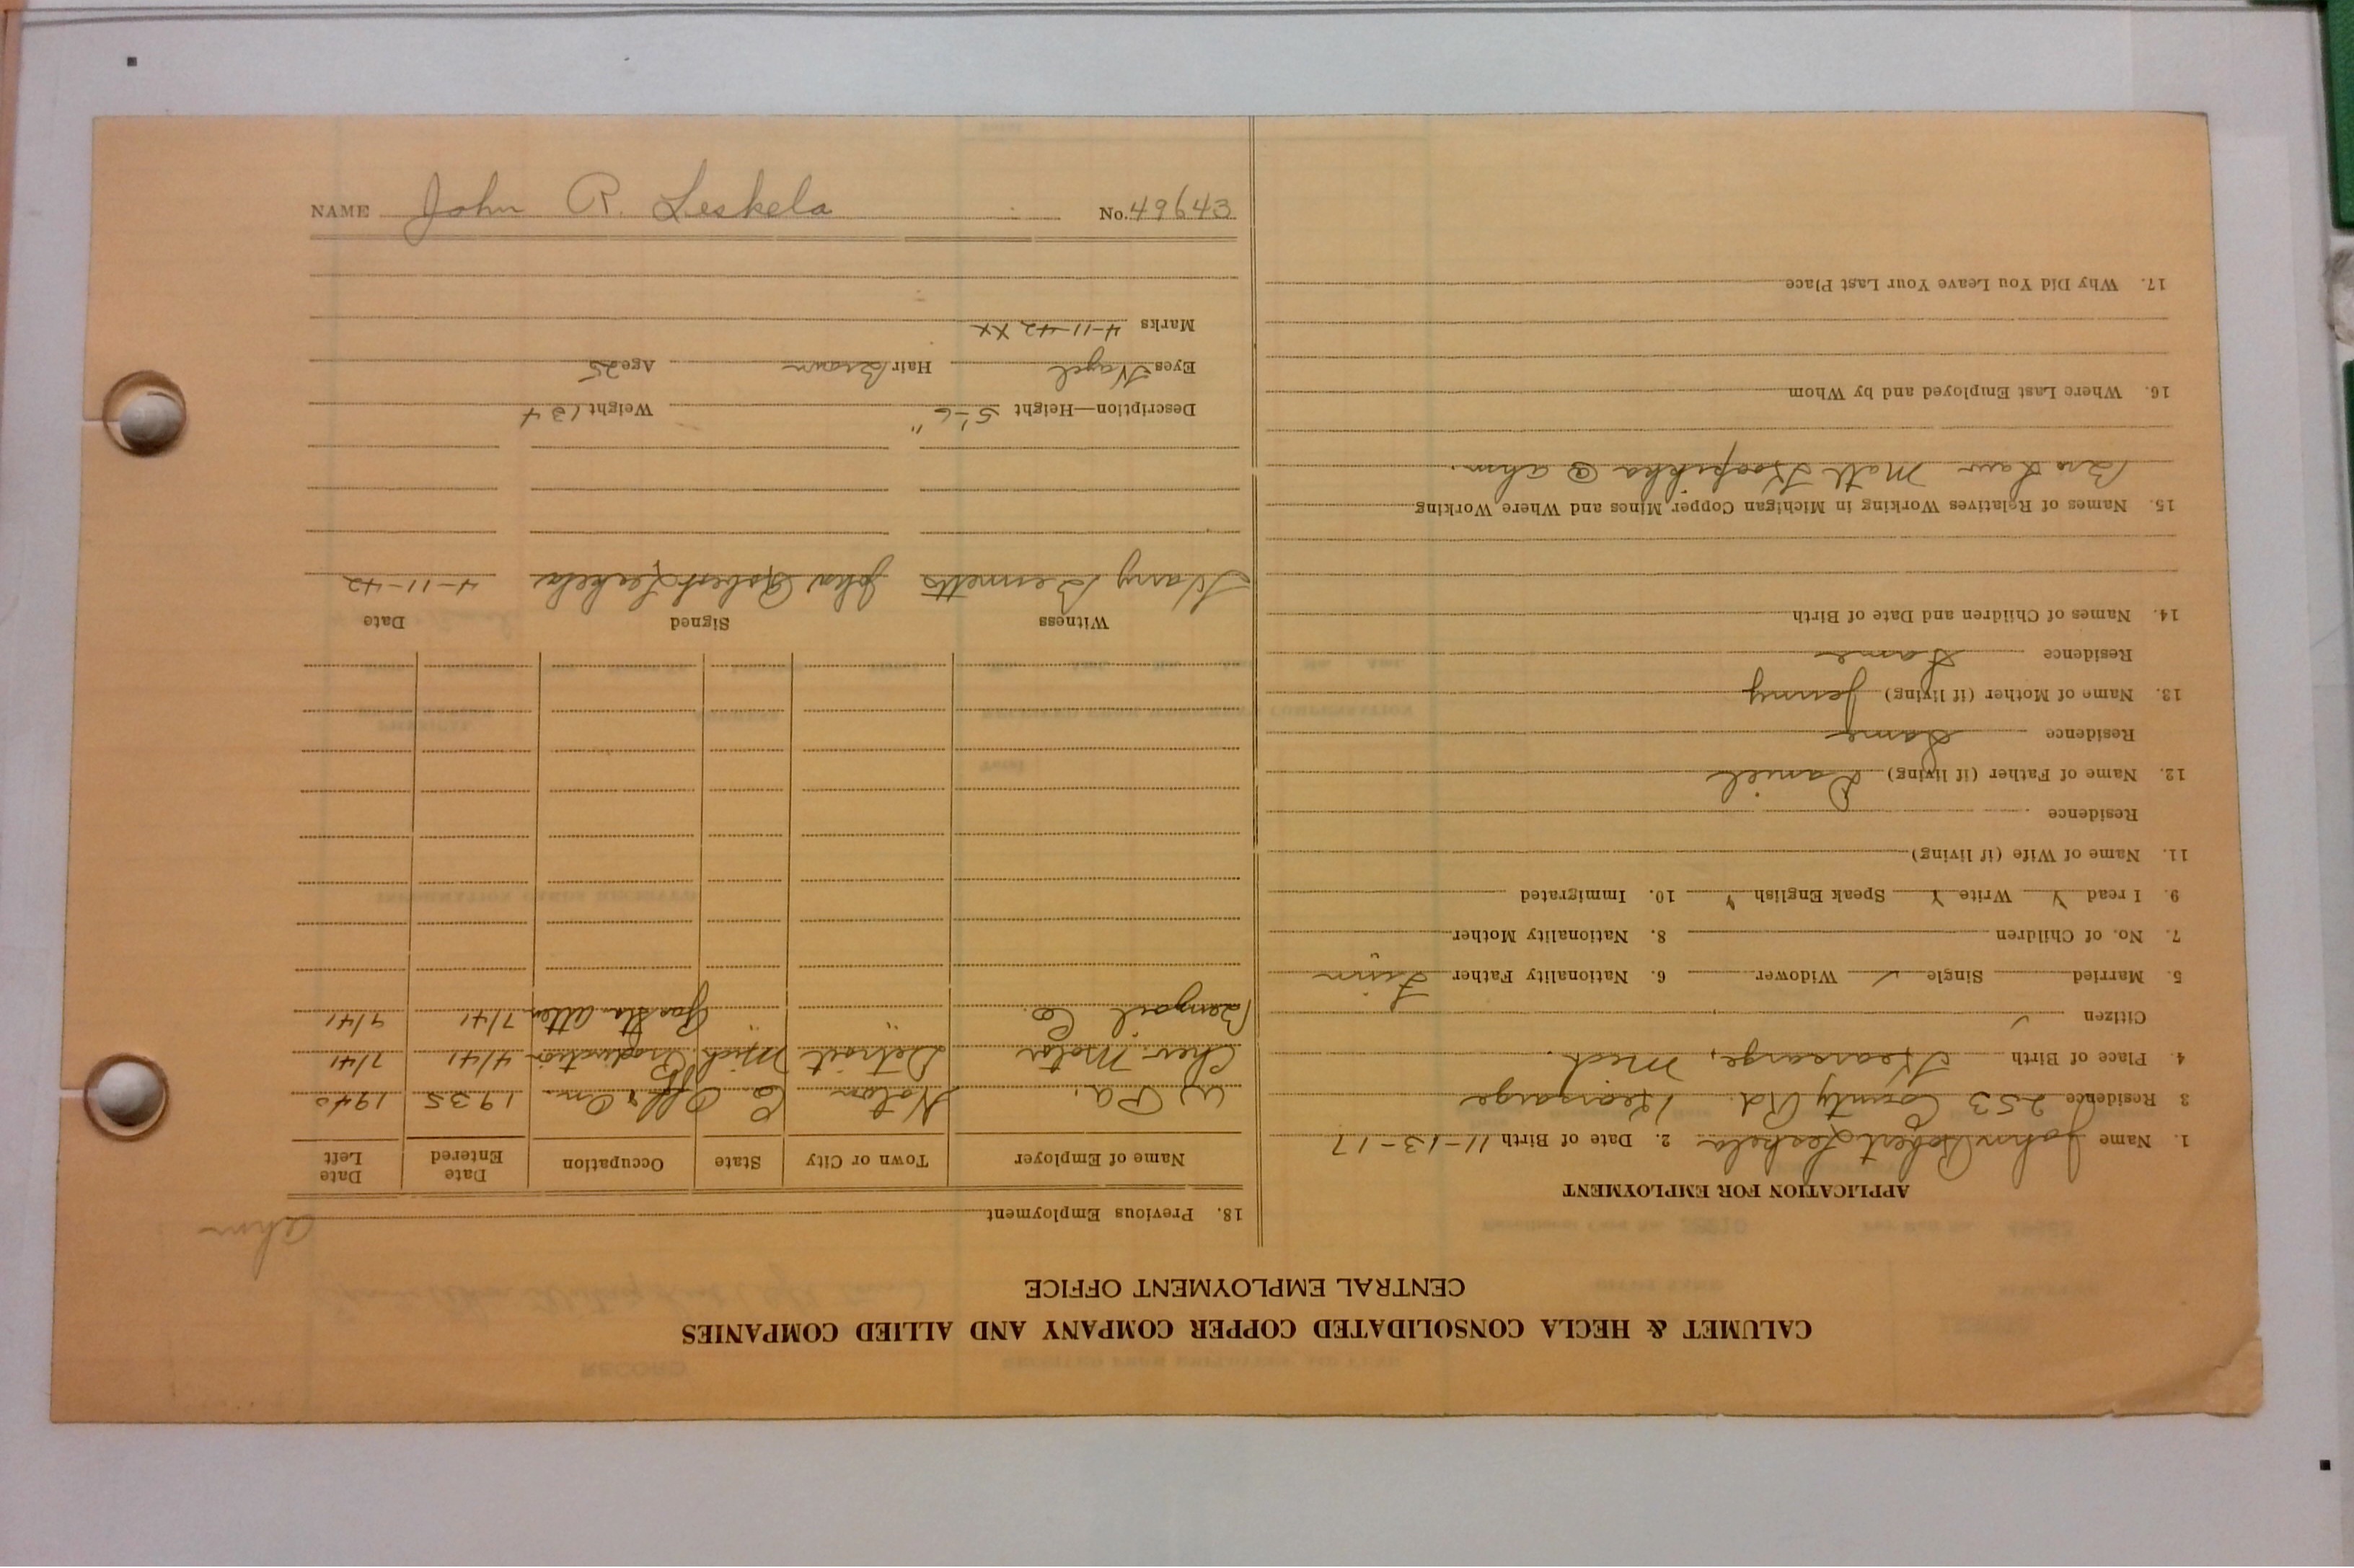 NAME John R. Leskela No. 49643
CALUMET & HECLA CONSOLIDATED COPPER COMPANY AND ALLIED COMPANIES
CENTRAL EMPLOYMENT OFFICE
APPLICATION FOR EMPLOYMENT
1. Name John Robert Leskela 2. Date of Birth 11-13-17
3 Residence 253 County Rd. Kearsarge
4. Place of Birth Kearsarge, Mich.
Citizen ✓
5. Married Single ✓ Widower 6. Nationality Father Finn
7. No. of Children 8. Nationality Mother
9. I read Y Write Y Speak English Y 10. Immigrated
11. Name of Wife (if living)
Residence
12. Name of Father (if living) Daniel
Residence Same
13. Name of Mother (if living) Jenny
Residence Same
14. Names of Children and Date of Birth
15. Names of Relatives Working in Michigan Copper Mines and Where Working
Bro Law Matt @ Ahm.
16. Where Last Employed and by Whom
17. Why Did You Leave Your Last Place
18. Previous Employment
Ahm
Name of Employer Town or City State Occupation Date Entered Date Left
W P a. Co. 1935 1940
Chev. Motor Detroit Mich Production 4/41 7/41
Co. " " Gas Sta Atten 7/41 9/41
Witness Signed Date
Harry Bennetts John Robert Leskela 4-11-42
Description—Height 5'-6" Weight 134
Eyes Hazel Hair Brown Age 25
Marks 4-11-42 XX